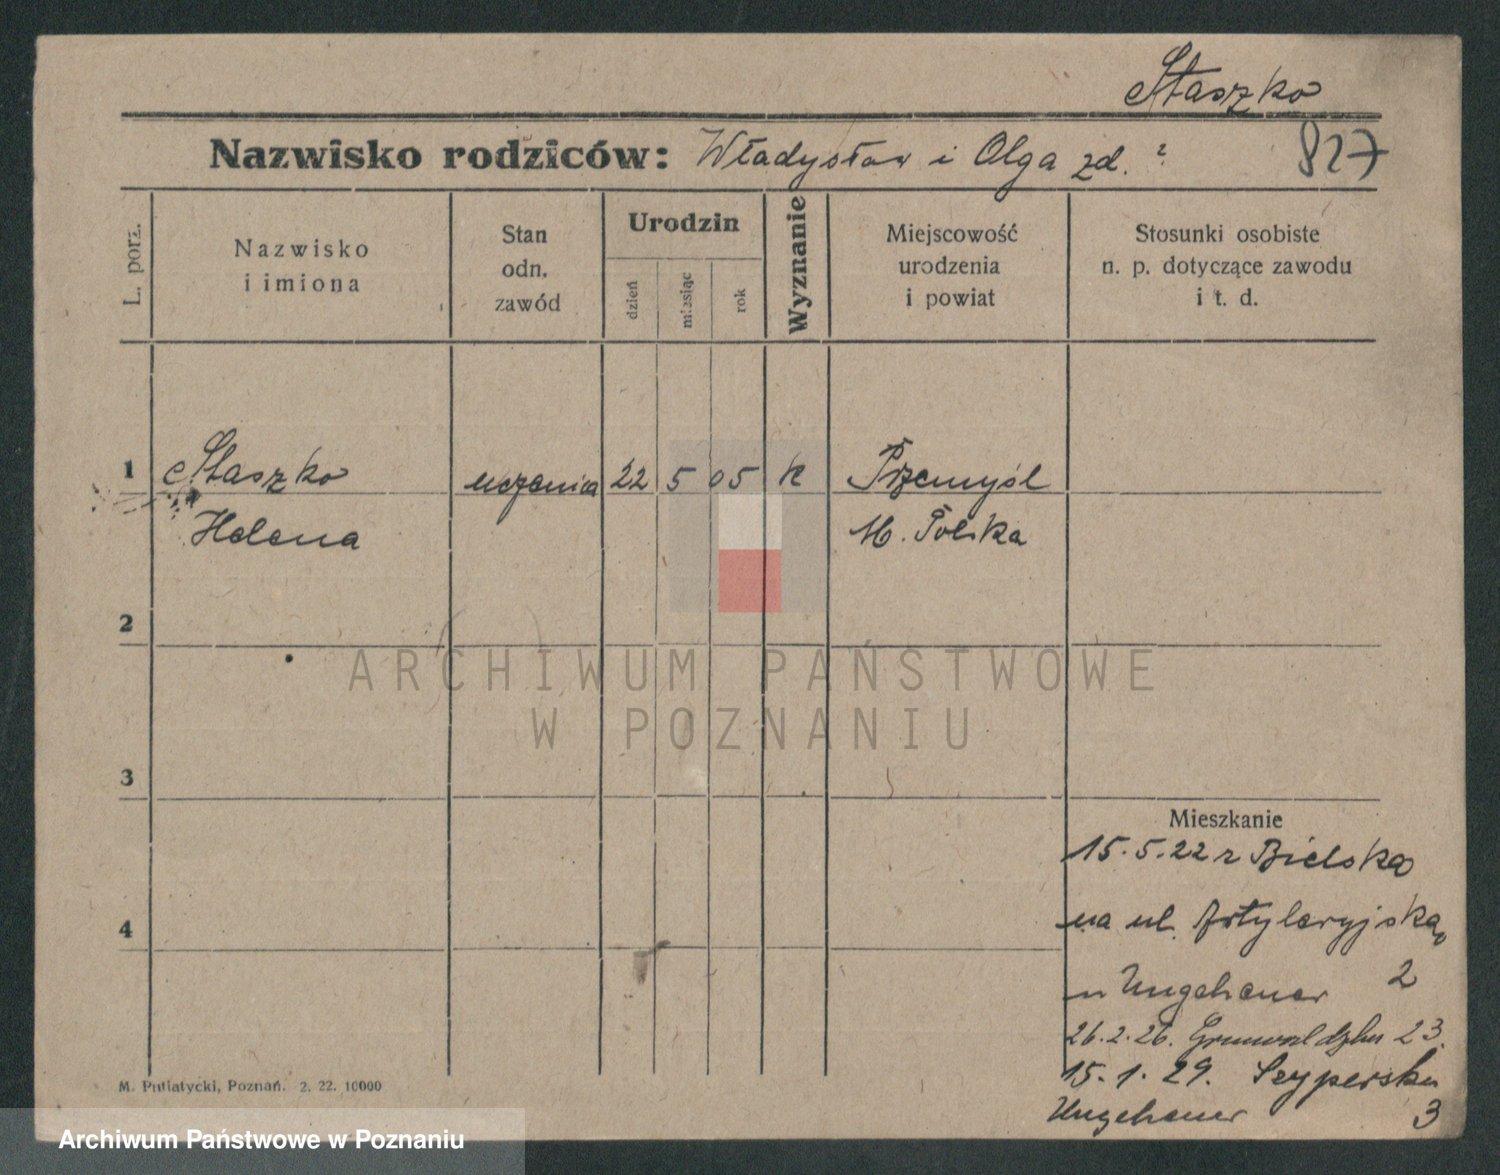 Staszko
Nazwisko rodziców: Władysław i Olga zd. ?
827
L. porz.
Nazwisko
i imiona
Stan
odn.
zawód
Urodzin
dzień
miesiąc
rok
Wyznanie
Miejscowość
urodzenia
i powiat
Stosunki osobiste
n. p. dotyczące zawodu
i t. d.
1 Staszko uczenica 22 5 05 K Przemyśl
Helena M. Polska
2
ARCHIWUM PAŃSTWOWE
W POZNANIU
3
Mieszkanie
15.5.22 z Bielska
na ul. Artyleryjską
4
u Ungeheuer 2
26.2.26. Grunwaldzka 23.
15.1.29. Szyperska
M. Putiatycki, Poznań. 2. 22. 10000
Ungeheuer 3
Archiwum Państwowe w Poznaniu